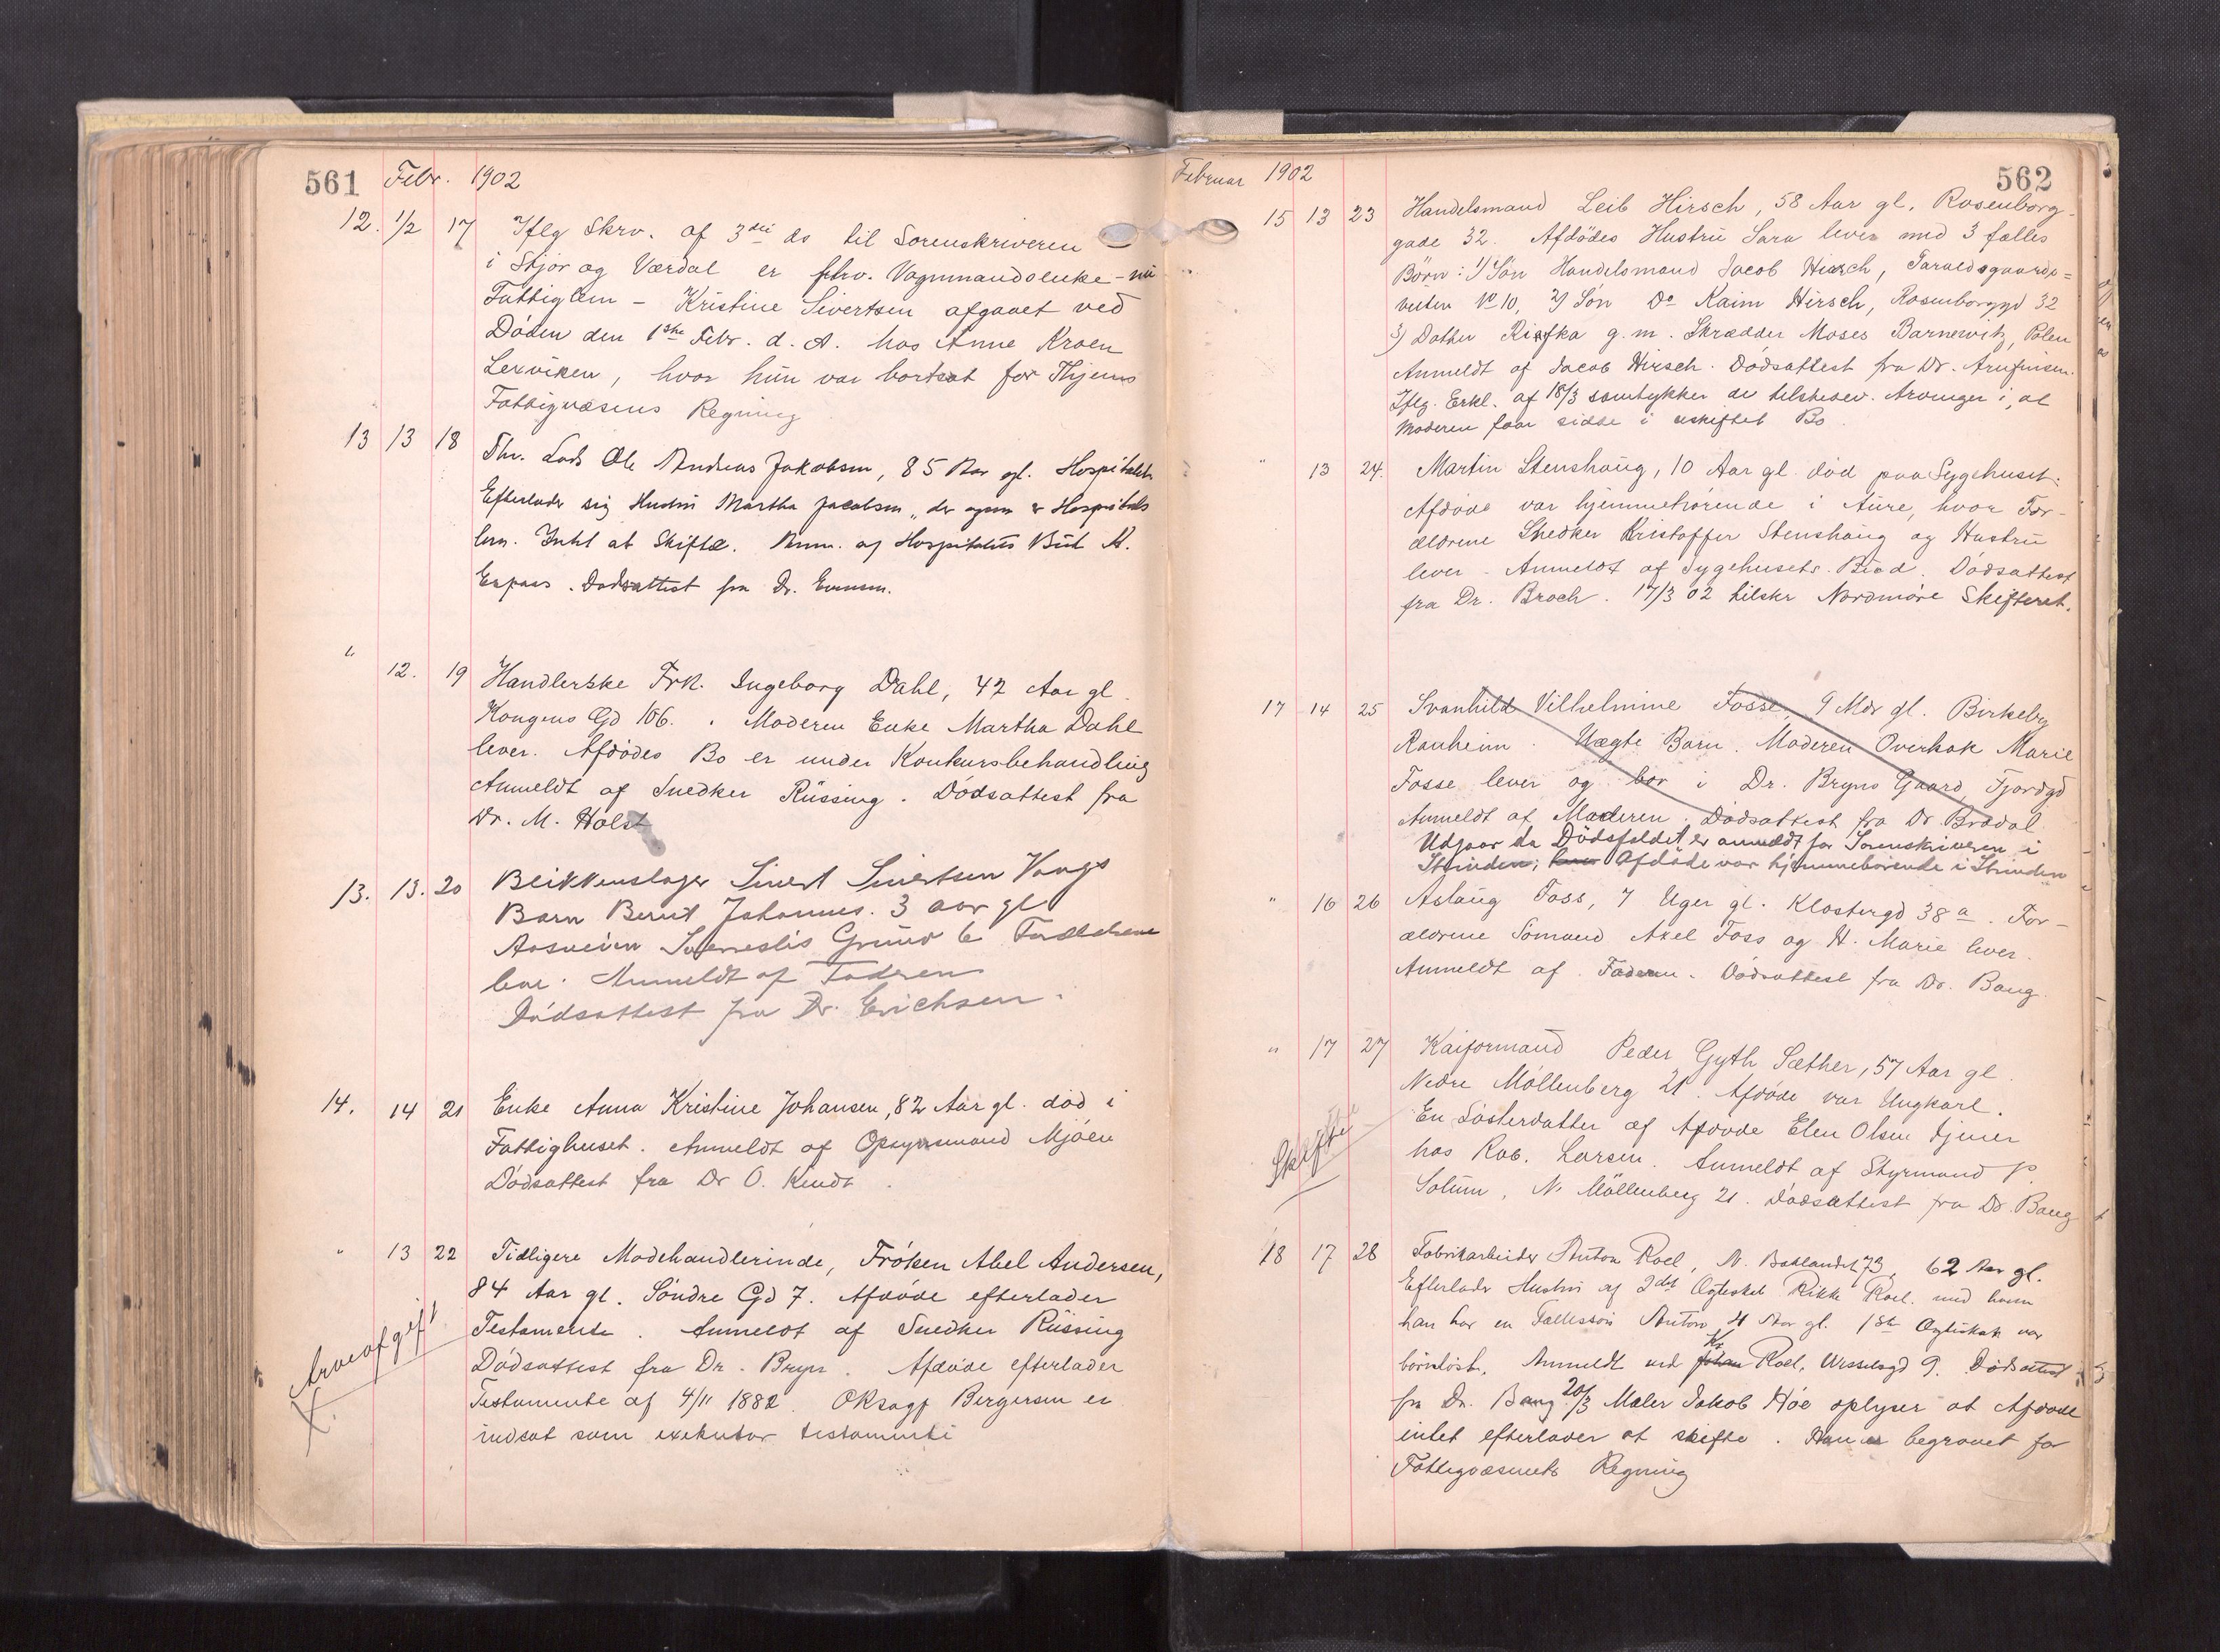 561 Febr. 1902
12. 1/2 17 Iflg Skrv. af 3die ds til Sorenskriveren
i Stjør og Værdal er fhv. Vognmandsenke - nu
Fattiglem - Kristine Sivertsen afgaaet ved
Døden den 1ste Febr. d. A. hos Anne Kroen
Lexviken, hvor hun var bortsat for Thjems
Fattigvæsens Regning
13 13 18 Fhv. Lods Ole Andreas Jakobsen, 85 Aar gl. Hospitalet
Efterlader sig Hustru Martha Jacobsen, der ogsaa er Hospitals
lem. Intet at Skifte. Anm. af Hospitalets Bud A.
Espaas. Dødsattest fra Dr. Evensen.
" 12. 19 Handlerske Frk. Ingeborg Dahl, 42 Aar gl.
Kongens Gd 106. Moderen Enke Martha Dahl
lever. Afdødes Bo er under Konkursbehandling
Anmeldt af Snedker Rüssing. Dødsattest fra
Dr. M. Holst
13. 13. 20 Blikkenslager Sivert Sivertsen Vangs
Barn Bernt Johannes. 3 aar gl
Aasveien Sverreslis Grund 6 Forældrene
leve. Anmeldt af Faderen
Dødsattest fra Dr. Erichsen.
14. 14 21 Enke Anna Kristine Johansen, 82 Aar gl. død i
Fattighuset. Anmeldt af Opsynsmand Mjøen
Dødsattest fra Dr O. Kindt.
" 13 22 Tidligere Modehandlerinde, Frøken Abel Andersen,
84 Aar gl. Søndre Gd 7. Afdøde efterlader
Testamente. Anmeldt af Snedker Rüssing
Arveafgift
Dødsattest fra Dr. Bryn. Afdøde efterlader
X.
Testamente af 4/11 1882. ORsagf Bergersen er
indsat som exekutor testamenti
Februar 1902 562
15 13 23 Handelsmand Leib Hirsch, 58 Aar gl. Rosenborg-
gade 32. Afdødes Hustru Sara lever med 3 fælles
Børn: 1) Søn Handelsmand Jacob Hirsch, Taraldsgaards=
veiten No 10, 2) Søn Do Kaim Hirsch, Rosenborggd 32
3) Datter Rifka g. m. Skrædder Moses Barnewitz, Polen
Anmeldt af Jacob Hirsch. Dødsattest fra Dr. Arnfinsen.
Iflg. Erkl. af 18/3 samtykker de tilstedev. Arvinger i, at
Moderen faar sidde i uskiftet Bo.
" 13 24. Martin Stenshaug, 10 Aar gl. død paa Sygehuset.
Afdøde var hjemmehørende i Aure, hvor For-
ældrene Snedker Kristoffer Stenshaug og Hustru
lever. Anmeldt af Sygehusets Bud. Dødsattest
fra Dr. Broch. 17/3 02 tilskr Nordmøre Skifteret.
17 14 25 Svanhild Vilhelmine Fosse, 9 Mdr gl. Birkeby
Ranheim. Uægte Barn. Moderen Overhak Marie
Fosse lever og bor i Dr. Bryns Gaard, Fjordgd
Anmeldt af Moderen. Dødsattest fra Dr Brodal
Udgaar da Dødsfaldet er anmeldt for Sorenskriveren i
Strinden; Afdøde var hjemmehørende i Strinden
" 16 26 Aslaug Foss, 7 Uger gl. Klostergd 38a. For-
ældrene Sømand Axel Foss og H. Marie lever.
Anmeldt af Faderen. Dødsattest fra Dr. Bang.
" 17 27 Kaiformand Peder Gyth Sæther, 57 Aar gl.
Nedre Møllenberg 21. Afdøde var Ungkarl.
En Søsterdatter af Afdøde Elen Olsen tjener
Skifte
hos Rob. Larsen. Anmeldt af Styrmand P.
Solum, N. Møllenberg 21. Dødsattest fra Dr. Bang
18 17 28 Fabrikarbeider Anton Roel, N. Baklandet 73, 62 Aar gl.
Efterlader Hustru af 2det Ægteskab Rikke Roel. med hvem
han har en Fællessøn Anton 4 Aar gl. 1ste Ægteskab var
barnløst. Anmeldt ved Kr. Roel, Wesselsgd 9. Dødsattest
fra Dr. Bang. 20/3 Maler Jakob Høe oplyser at Afdøde
intet efterlader at skifte. Han er begravet for
Fattigvæsenets Regning